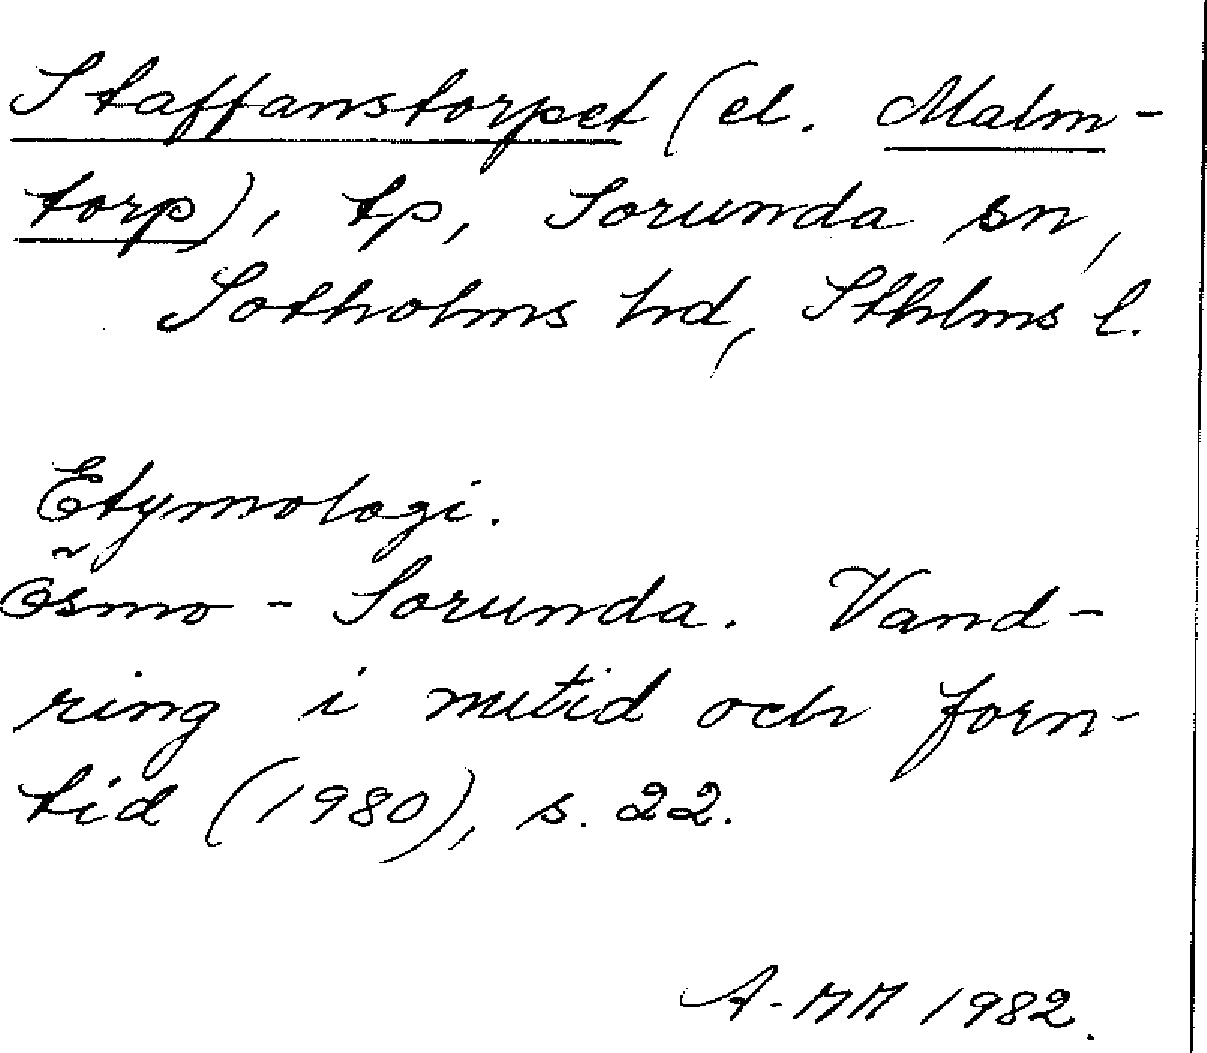 Staffanstorpet (el. Malm-
torp), tp, Sorunda sn,
Sotholms hd, Sthlms l.
Etymologi.
Ösmo - Sorunda. Vand-
ring i nutid och forn-
tid (1980), s. 22.
A-MM 1982.